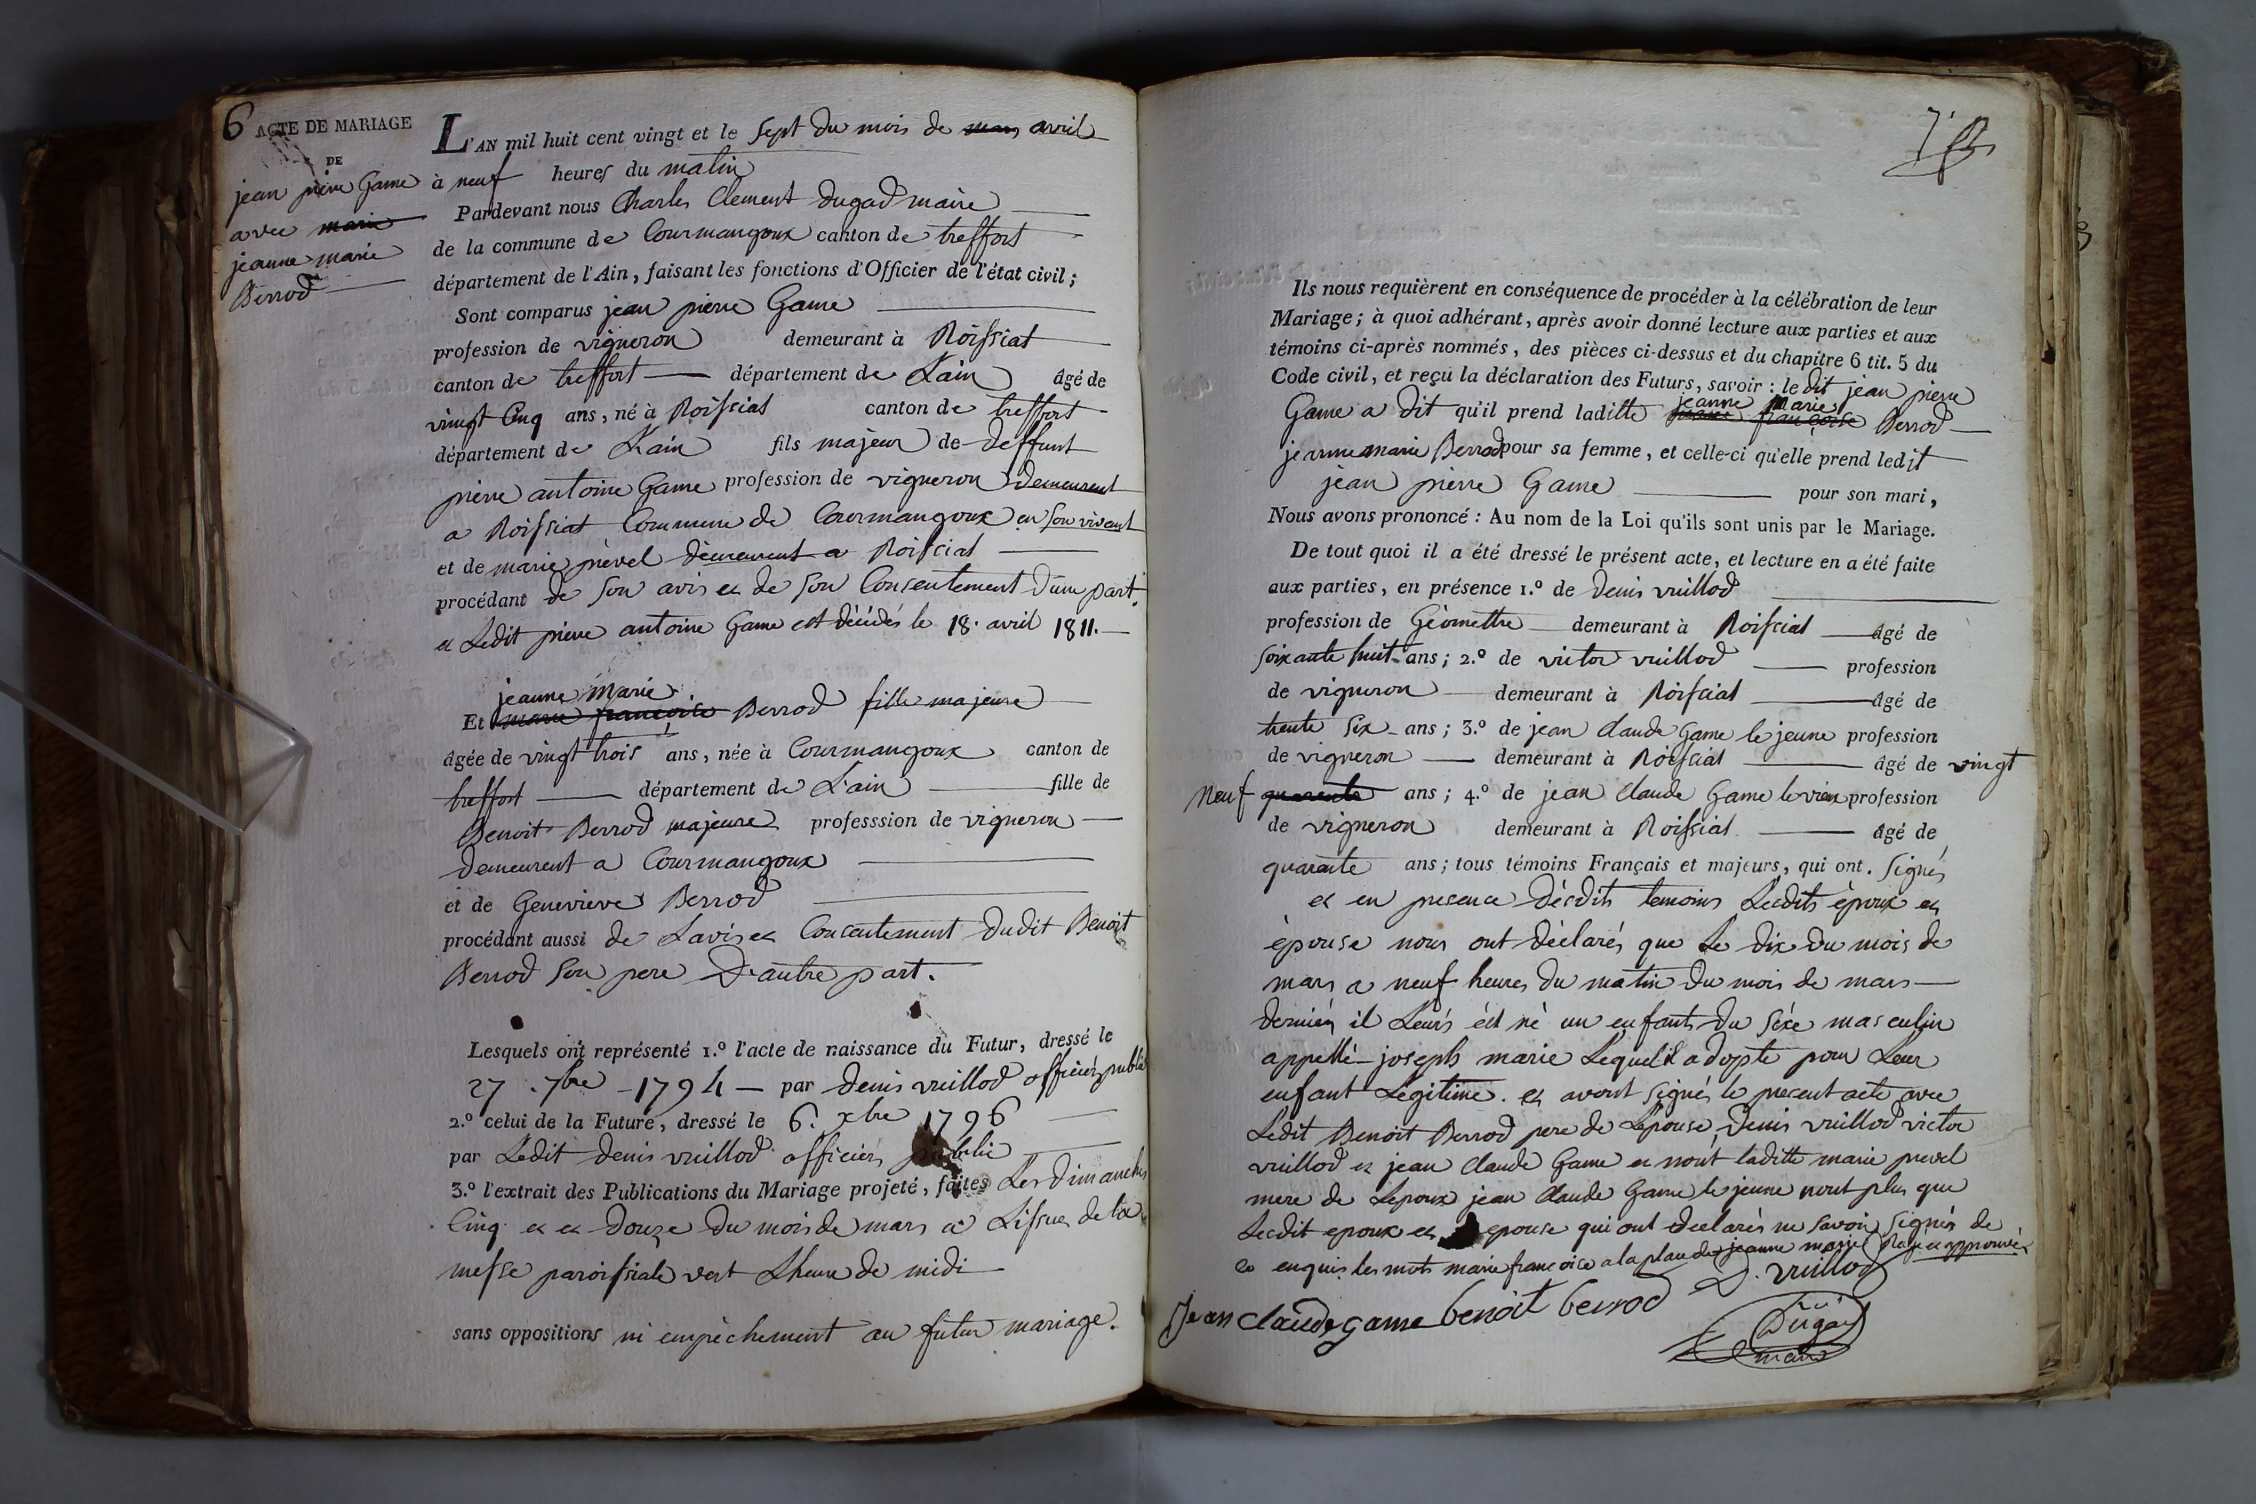 6 ACTE DE MARIAGE
DE
jean pierre Game
avec marie
jeanne marie
Berrod
L'AN mil huit cent vingt et le sept du mois de mars avril
à neuf heures du matin
Pardevant nous Charles Clement dugad maire
de la commune de Courmangoux canton de treffort
département de l'Ain, faisant les fonctions d'Officier de l'état civil;
Sont comparus jean pierre Game
profession de vigneron demeurant à Roissiat
canton de treffort département de Lain âgé de
vingt Cinq ans, né à Roissiat canton de treffort
département de Lain fils majeur de deffunt
pierre antoine Game profession de vigneron demeurent
a Roissiat Commune de Courmangoux en son vivent
et de marie prevel demeurent a Roissiat
procédant de son avis et de son Consentement d'une part.
et Ledit pierre antoine Game est décédés le 18. avril 1811.
jeanne marie
Et marie françoise Berrod fille majeure
âgée de vingt trois ans, née à Courmangoux canton de
treffort département de L'ain fille de
Benoit Berrod majeure professsion de vigneron
demeurent a Courmangoux
et de Genevieve Berrod
procédant aussi de Lavis et Consentement dudit Benoit
Berrod son pere D'autre part.
Lesquels ont représenté 1.º l'acte de naissance du Futur, dressé le
27 . 7bre - 1794 - par denis vuillod officier public
2.º celui de la Future, dressé le 6. xbre 1796
par Ledit denis vuillod officier public
3.º l'extrait des Publications du Mariage projeté, faites Les dimanches
Cinq et et douze du mois de mars a Lissue de la
messe paroissiale vert Lheure de midi
sans oppositions ni empêchement au futur mariage.
7.
Ils nous requièrent en conséquence de procéder à la célébration de leur
Mariage; à quoi adhérant, après avoir donné lecture aux parties et aux
témoins ci-après nommés, des pièces ci-dessus et du chapitre 6 tit. 5 du
Code civil, et reçu la déclaration des Futurs, savoir : le dit jean pierre
jeanne marie
Game a dit qu'il prend laditte marie françoise Berrod
jeanne marie Berrod pour sa femme, et celle-ci qu'elle prend ledit
jean pierre Game pour son mari,
Nous avons prononcé : Au nom de la Loi qu'ils sont unis par le Mariage.
De tout quoi il a été dressé le présent acte, et lecture en a été faite
aux parties, en présence 1.º de denis vuillod
profession de Géomettre demeurant à Roissiat âgé de
soixante huit ans; 2.º de victor vuillod profession
de vigneron demeurant à Roissiat âgé de
trente six ans; 3.º de jean claude Game le jeune profession
de vigneron demeurant à Roissiat âgé de vingt
neuf quarente ans; 4.º de jean Claude Game le vieux profession
de vigneron demeurant à Roissiat âgé de
quarante ans; tous témoins Français et majeurs, qui ont. signés
et en presence désdits temoins Lesdits époux et
épouse nous ont déclarés que Le dix du mois de
mars a neuf heures du matin du mois de mars
dernier il Leurs ést né un enfants du séxe masculin
appellé joseph marie Lequel adopte pour Leur
enfant Légitime. et avont signés le present acte avec
Ledit Benoit Berrod pere de Lépouse, denis vuillod victor
vuillod et jean Claude Game et nont laditte marie prevel
mere de Lepoux jean Claude Game le jeune nont plus que
Lesdit epoux et epouse qui ont declarés ne savoir signér de
ce enquis les mots marie françoise a la place de jeanne marie Rayé et approuvé
D. vuillod
jean claude game benoit berrod
Dugad
maire